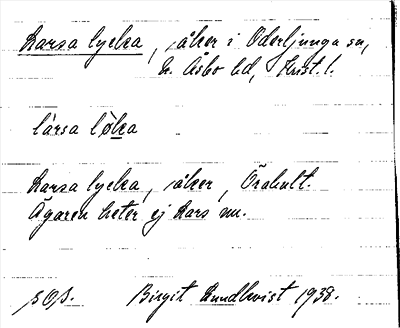 Larsa lycka, såker i Oderljunga sn,
N. Åsbo hd, Krist. l.
làrsa løka
Larsa lycka, såker, Örahult.
Ägaren heter ej Lars nu.
Birgit Lundkvist 1938.